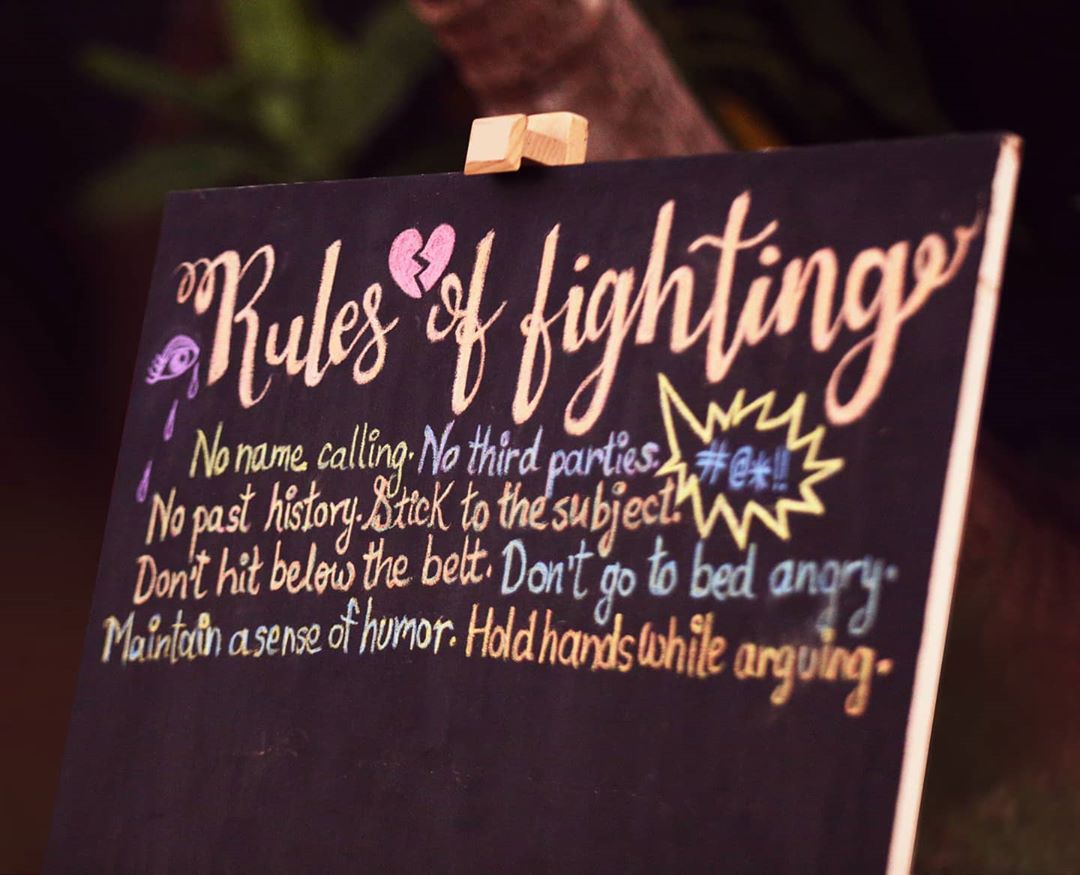 Rules of fighting
No name calling. No third parties. #@*!!
No past history. Stick to the subject!
Don't hit below the belt. Don't go to bed angry.
Maintain a sense of humor. Hold hands while arguing.